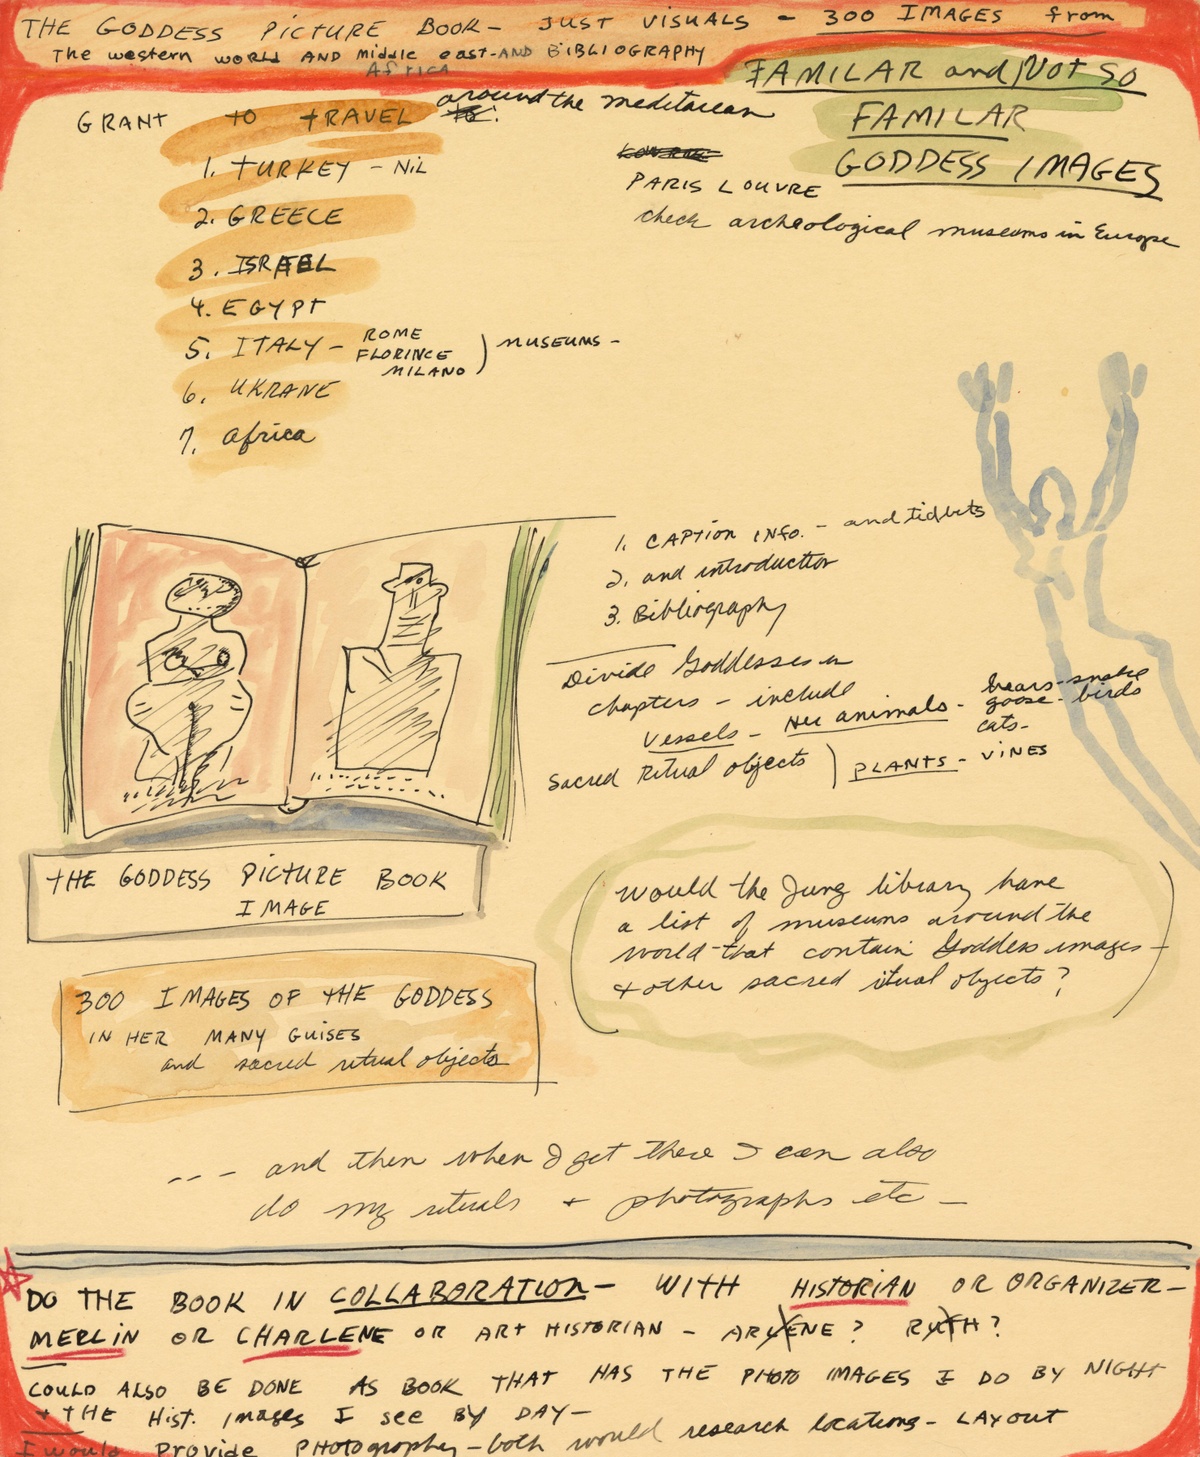 THE GODDESS PICTURE BOOK - JUST VISUALS - 300 IMAGES from
The western world AND Middle east - AND BIBLIOGRAPHY
Africa
FAMILAR and Not SO
FAMILAR
GODDESS IMAGES
GRANT TO TRAVEL around the meditarean
1. TURKEY - Nil
2. GREECE
3. ISRAEL
4. EGYPT
5. ITALY - ROME
FLORINCE
MILANO
) MUSEUMS -
6. UKRANE
7. Africa
PARIS LOUVRE
check archeological museums in Europe
1. CAPTION INFO. - and tidbits
2. and introduction
3. Bibliography
Divide Goddesses in
chapters - include
Vessels - Her animals - bears - snake
goose - birds
cats -
Sacred Ritual objects ) PLANTS - VINES
THE GODDESS PICTURE BOOK
IMAGE
300 IMAGES OF THE GODDESS
IN HER MANY GUISES
and sacred ritual objects
(Would the Jung library have
a list of museums around the
world that contain Goddess images -
+ other sacred itual objects?)
--- and then when I get there I can also
do my rituals + photographs etc -
DO THE BOOK IN COLLABORATION - WITH HISTORIAN OR ORGANIZER -
MERLIN OR CHARLENE OR ART HISTORIAN - ARLENE? RUTH?
COULD ALSO BE DONE AS BOOK THAT HAS THE PHOTO IMAGES I DO BY NIGHT
+ THE Hist. Images I see BY DAY -
I would Provide PHotography - both would research locations - LAYOUT